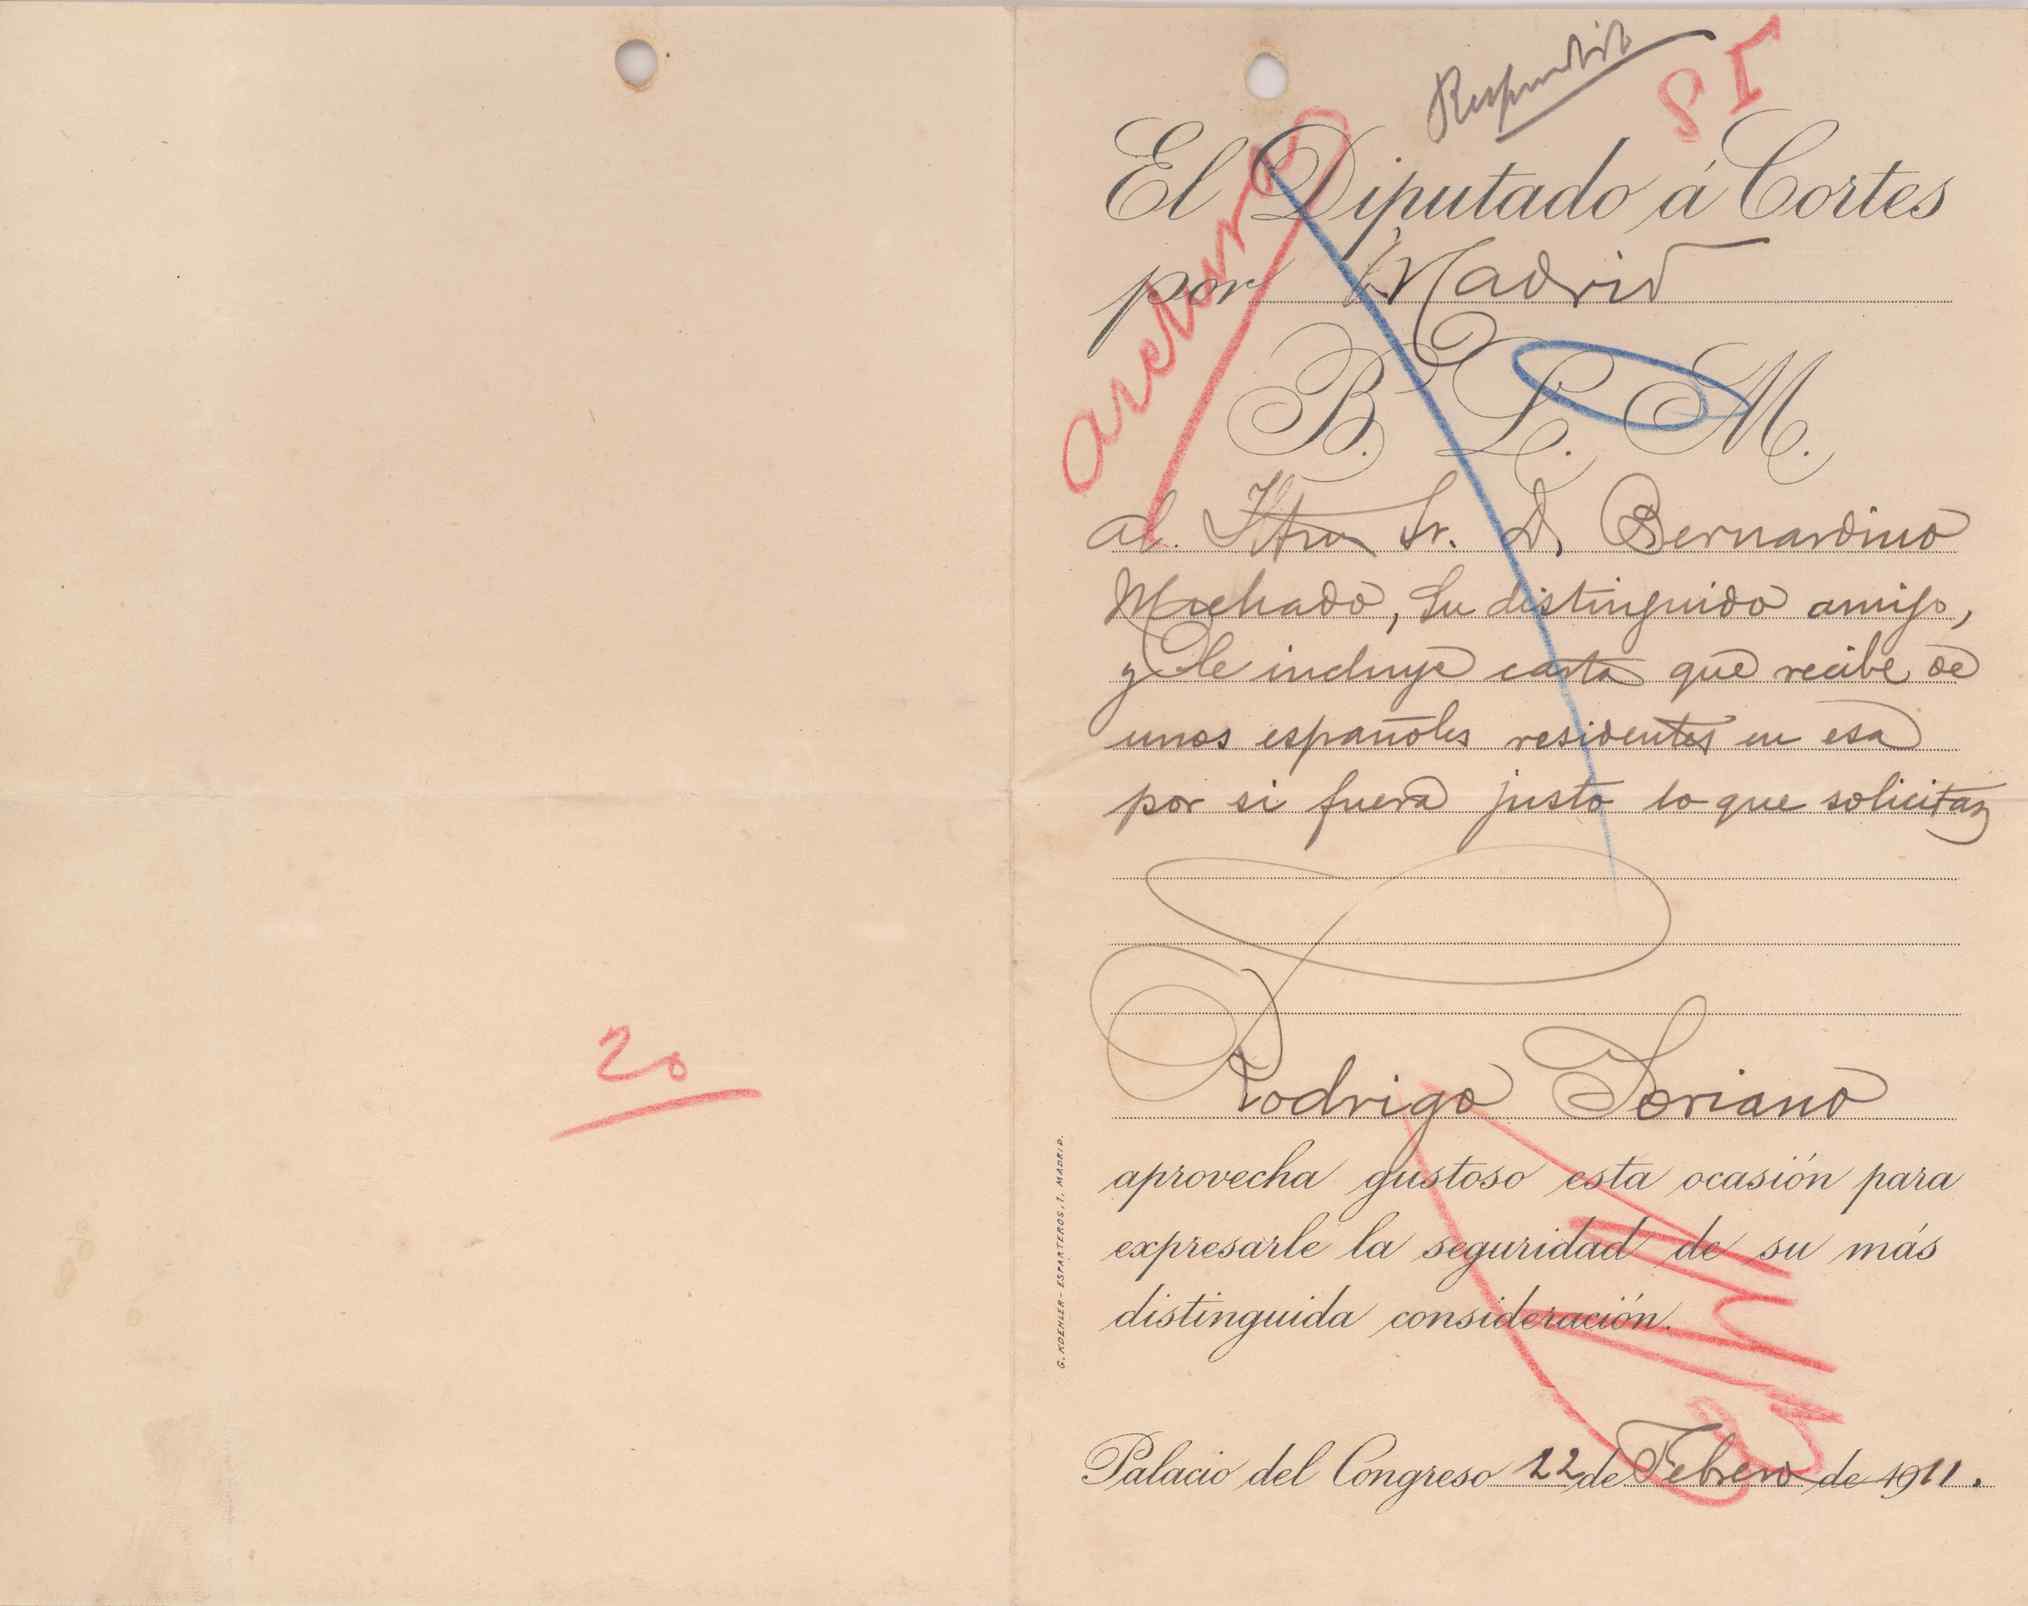 Respondido
18
El Diputado á Cortes
por Madrid
B. L. M.
al Iltmo Sr. D. Bernardino
Machado, su distinguido amigo,
y le incluye carta que recibe de
unos españoles residentes en esa
por si fuera justo lo que solicitan
Rodrigo Soriano
aprovecha gustoso esta ocasión para
expresarle la seguridad de su más
distinguida consideración.
Palacio del Congreso 22 de Febrero de 1911.
G. KOEHLER-ESPARTEROS, 1, MADRID.
20